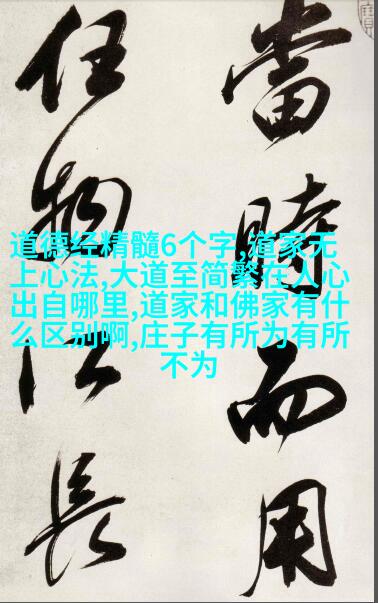 當時而用
任物長
道德经精髓6个字,道家无
上心法,大道至简繁在人心
出自哪里,道家和佛家有什
么区别啊,庄子有所为有所
不为